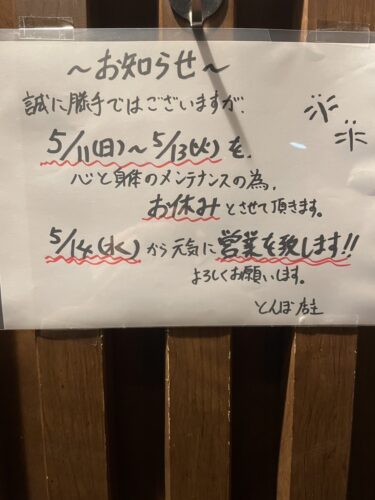 ～お知らせ～
誠に勝手ではございますが、
5/11(日)～5/13(火)を、
心と身体のメンテナンスの為、
お休みとさせて頂きます。
5/14(水)から元気に営業を致します!!
よろしくお願いします。
とんぼ店主